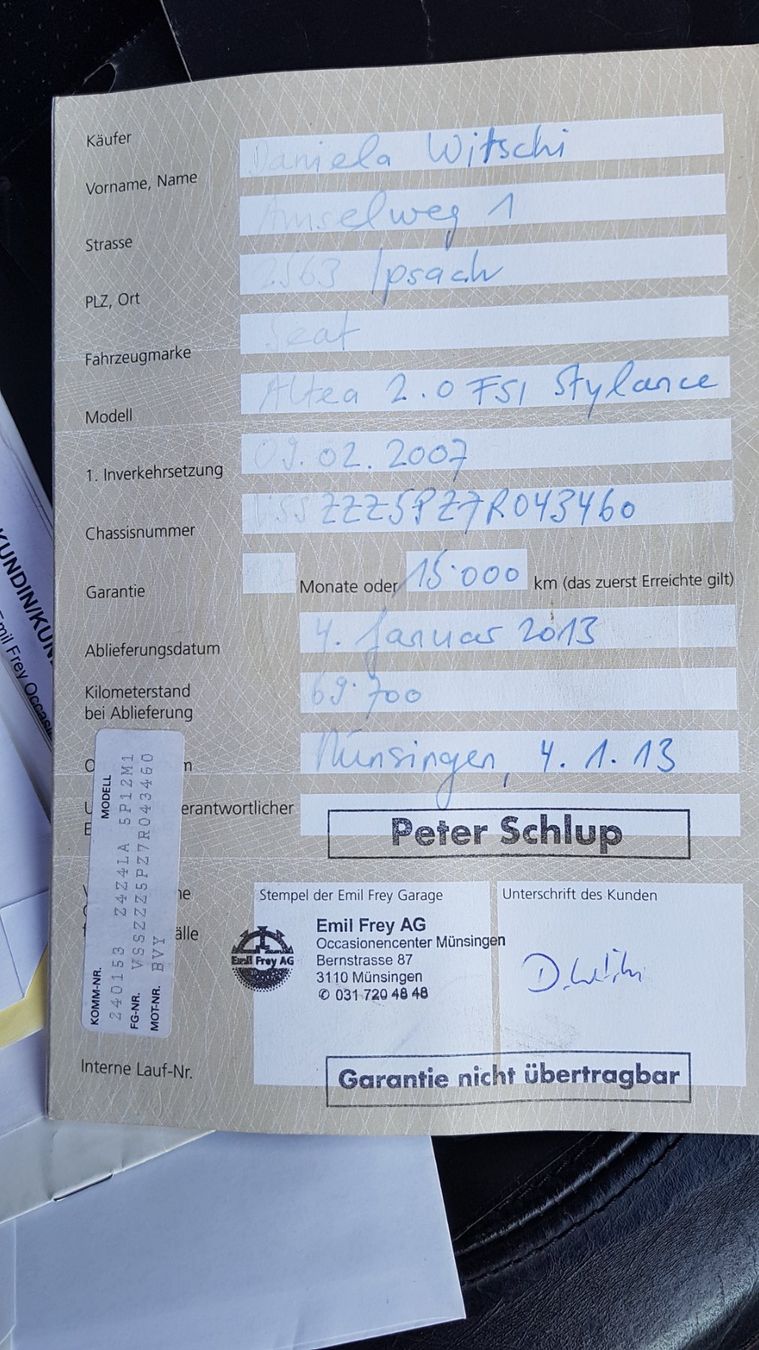 Käufer
Vorname, Name Daniela Witschi
Strasse Amselweg 1
PLZ, Ort 2563 Ipsach
Fahrzeugmarke Seat
Modell Altea 2.0 FSI Stylance
1. Inverkehrsetzung 09.02.2007
Chassisnummer VSSZZZ5PZ7R043460
Garantie 12 Monate oder 15'000 km (das zuerst Erreichte gilt)
Ablieferungsdatum 4. Januar 2013
Kilometerstand
bei Ablieferung 69'700
Münsingen, 4.1.13
erantwortlicher
Peter Schlup
Stempel der Emil Frey Garage
Unterschrift des Kunden
Emil Frey AG
Emil Frey AG
Occasionencenter Münsingen
Bernstrasse 87
3110 Münsingen
✆ 031 720 48 48
D. Witschi
älle
Interne Lauf-Nr.
Garantie nicht übertragbar
KOMM-NR. MODELL
240153 Z4Z4LA 5P12M1
FG-NR. VSSZZZ5PZ7R043460
MOT-NR. BVY
KUNDIN/KUN
Emil Frey Occasi